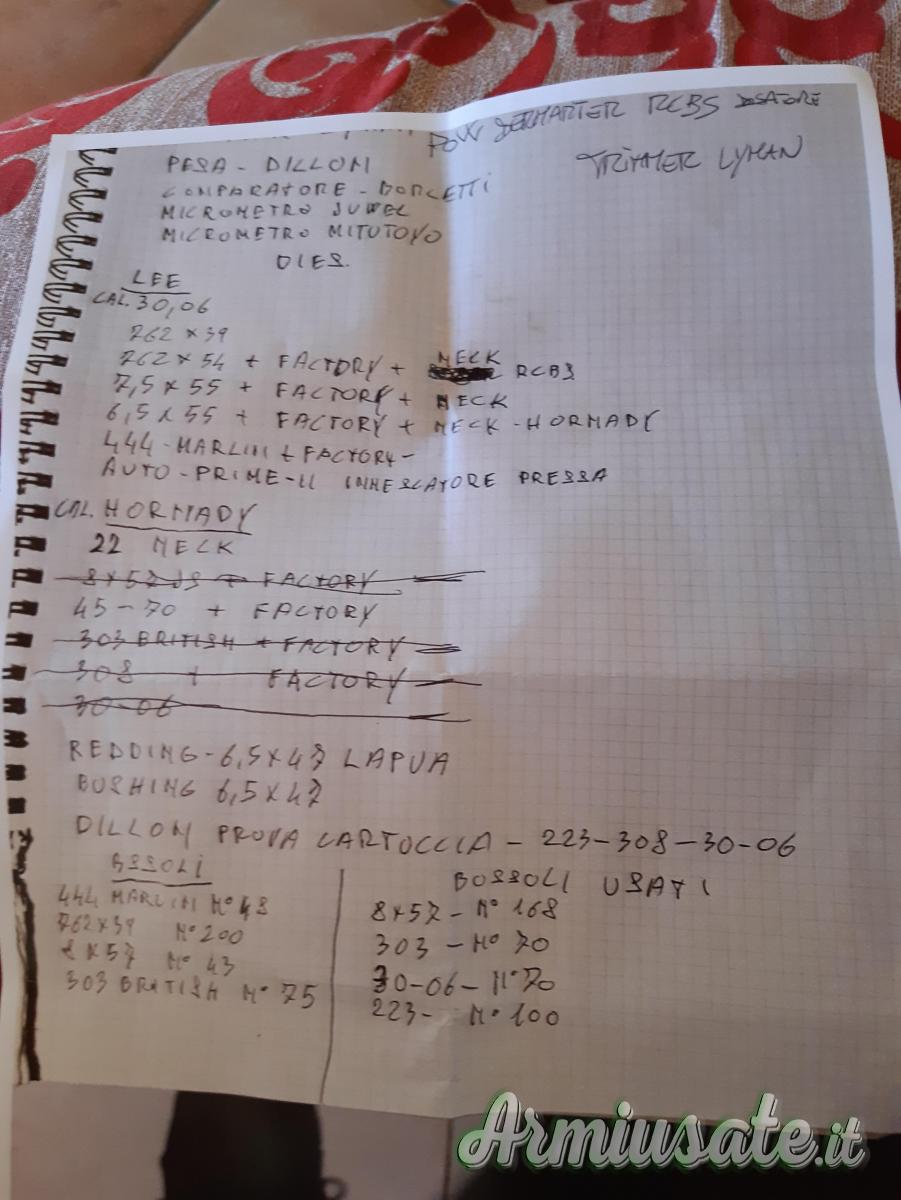 POW DERMARTER RCBS DOSATORE
TRIMMER LYMAN
PESA - DILLON
COMPARATORE - BORLETTI
MICROMETRO JUWEL
MICROMETRO MITUTOYO
DIES.
LEE
CAL. 30,06
762 x 39
762 x 54 + FACTORY + NECK RCBS
7,5 x 55 + FACTORY + NECK
6,5 x 55 + FACTORY + NECK - HORNADY
444 - MARLIN + FACTORY -
AUTO - PRIME - II INNESCATORE PRESSA
CAL. HORNADY
22 NECK
8x57 JS + FACTORY
45-70 + FACTORY
303 BRITISH + FACTORY
308 + FACTORY
30-06
REDDING - 6,5 x 47 LAPUA
BUSHING 6,5 x 47
DILLON PROVA CARTOCCIA - 223-308-30-06
BSSOLI
444 MARLIN N° 48
762x39 N° 200
8 x 57 N° 43
303 BRITISH N° 75
BOSSOLI USATI
8x57 - N° 168
303 - N° 70
30-06 - N° 70
223 - N° 100
Armiusate.it